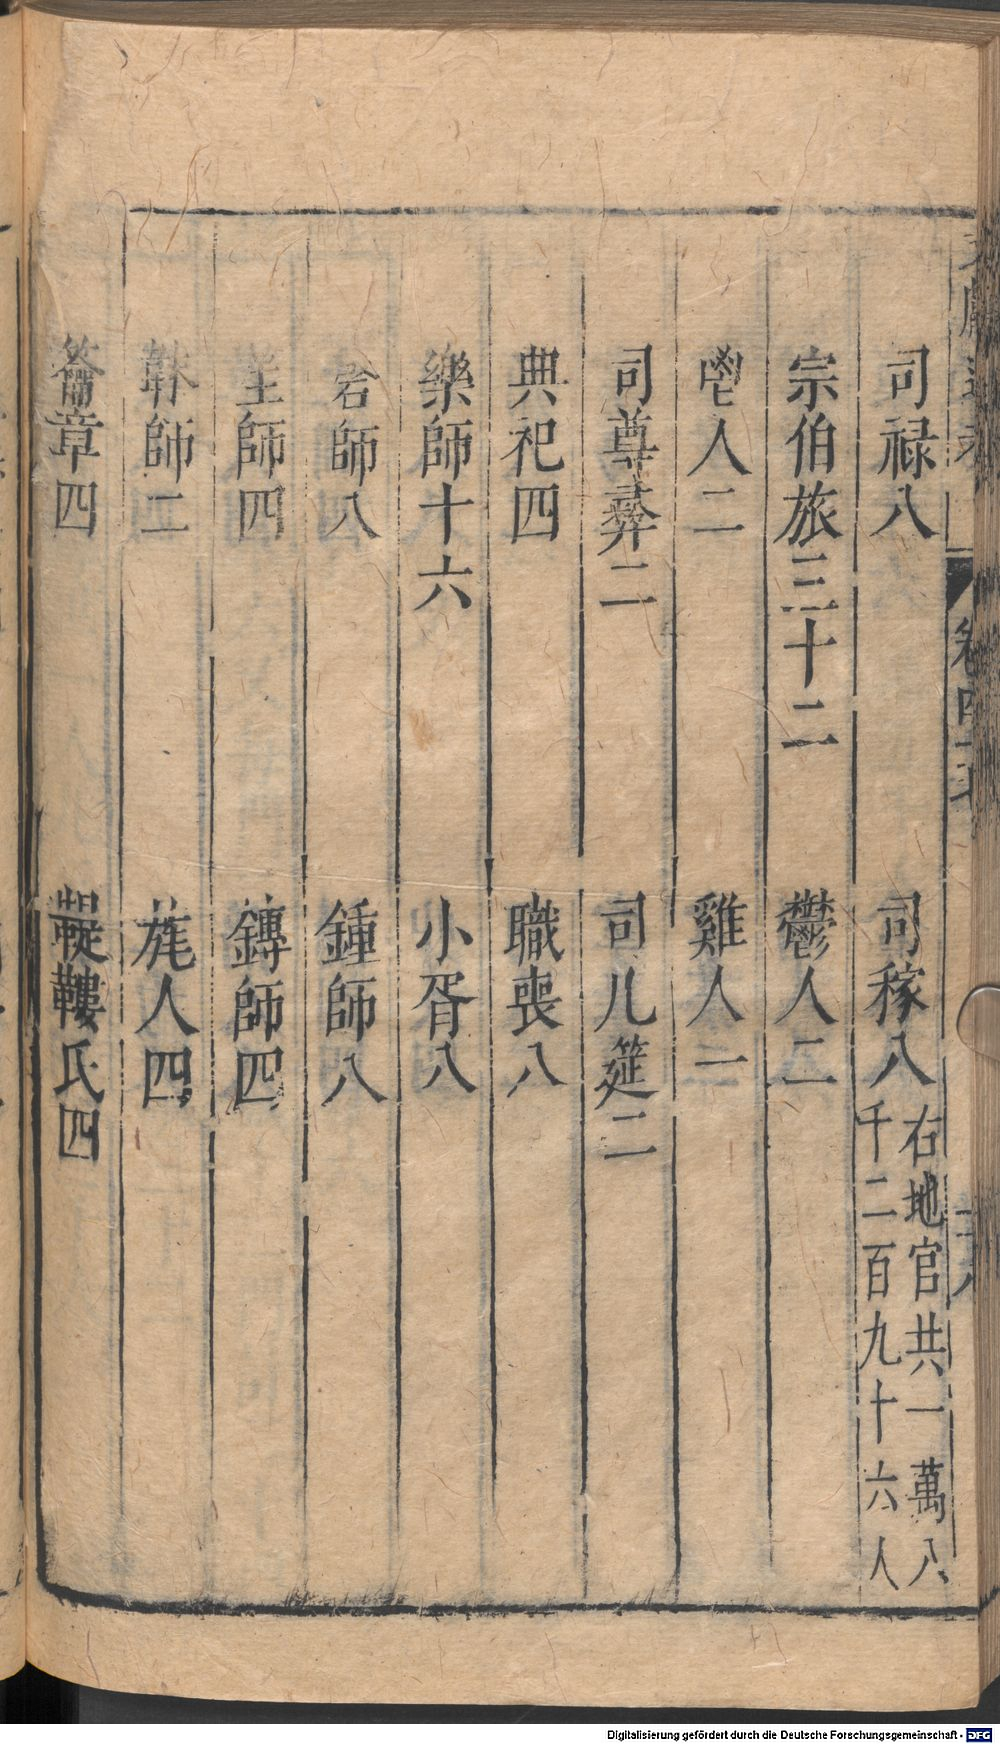 司禄八 司稼八 右地官共一萬八千二百九十六人
宗伯旅三十二 鬱人二
鬯人二 雞人一
司尊彛二 司几筵二
典祀四 職喪八
樂師十六 小胥八
師八 鍾師八
師四 鏄師四
韎師二 旄人四
籥章四 鞮鞻氏四
Digitalisierung gefördert durch die Deutsche Forschungsgemeinschaft - DFG